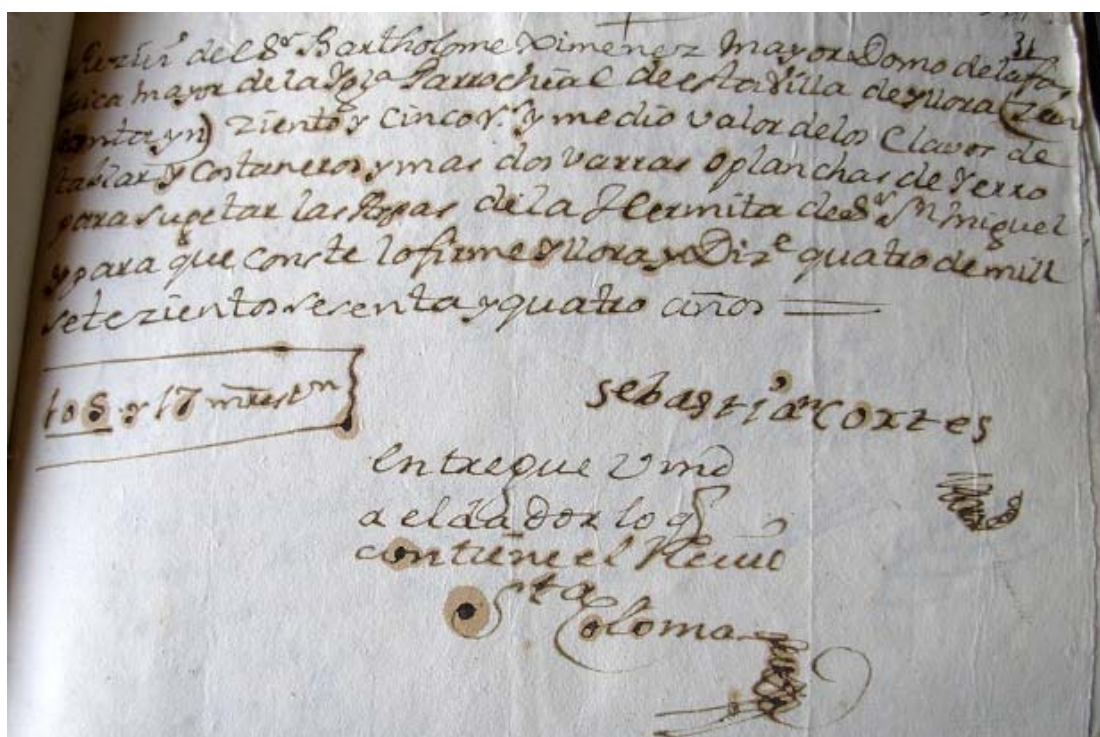 31
Rezivi del Sr Bartholome Ximenez Mayor Domo de la fa
brica mayor de la Ygla Parrochial de esta Villa de Yllora
zientos y cinco rs y medio valor de los Clavos de
tablar y Costaneros y mas dos varras o planchas de Yerro
para sugetar las de la Hermita de Sr Sn Miguel,
y para que conste lo firme Yllora y Dize quatro de mill
setezientos sesenta y quatro años
105 y 17 mrs vn
sebastian Cortes
entregue Vmd
a el dador lo q
contiene el Recivo
Sta
Coloma